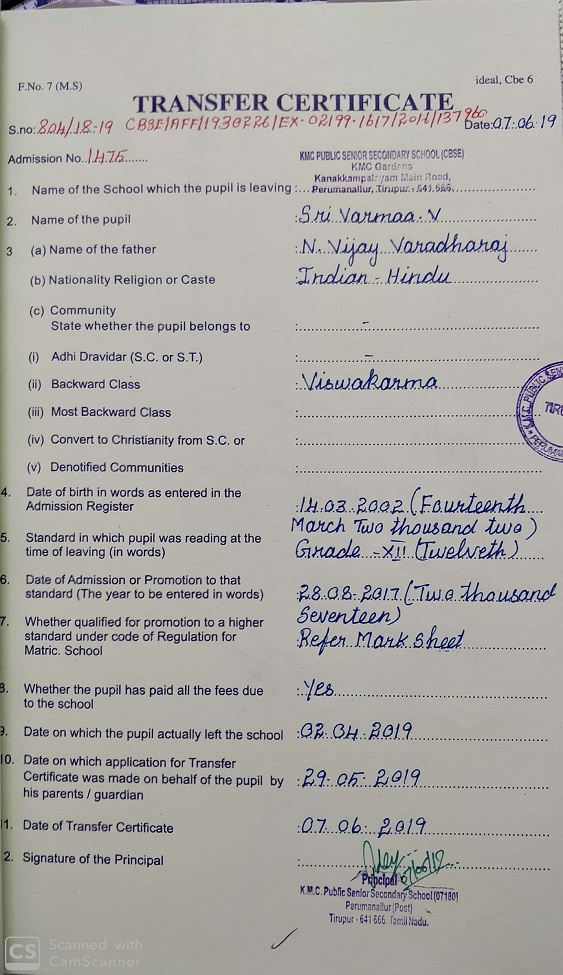 F.No. 7 (M.S)
ideal, Cbe 6
TRANSFER CERTIFICATE
S.no: 804/18-19 CBSE/AFF/1930226/EX-02199-1617/2016/137960 Date: 07.06.19
Admission No. 1475
KMC PUBLIC SENIOR SECONDARY SCHOOL (CBSE)
KMC Gardens
Kanakkampalayam Main Road,
1. Name of the School which the pupil is leaving : Perumanallur, Tirupur - 641 666.
2. Name of the pupil : Sri Varmaa. V
3 (a) Name of the father : N. Vijay Varadharaj
(b) Nationality Religion or Caste Indian - Hindu
(c) Community
State whether the pupil belongs to : -
(i) Adhi Dravidar (S.C. or S.T.) : -
(ii) Backward Class : Viswakarma
(iii) Most Backward Class :
(iv) Convert to Christianity from S.C. or :
(v) Denotified Communities :
4. Date of birth in words as entered in the
Admission Register : 14.03.2002 (Fourteenth
March Two thousand two)
5. Standard in which pupil was reading at the
time of leaving (in words) Grade - XII (Twelveth)
6. Date of Admission or Promotion to that
standard (The year to be entered in words) : 28.08.2017 (Two thousand
Seventeen)
7. Whether qualified for promotion to a higher
standard under code of Regulation for : Refer Mark Sheet
Matric. School
8. Whether the pupil has paid all the fees due : Yes
to the school
9. Date on which the pupil actually left the school : 02.04.2019
10. Date on which application for Transfer
Certificate was made on behalf of the pupil by : 29-05-2019
his parents / guardian
11. Date of Transfer Certificate : 07.06.2019
2. Signature of the Principal :
Principal
K.M.C. Public Senior Secondary School (07180)
Perumanallur (Post)
Tirupur - 641 666. Tamil Nadu.
CS Scanned with
CamScanner